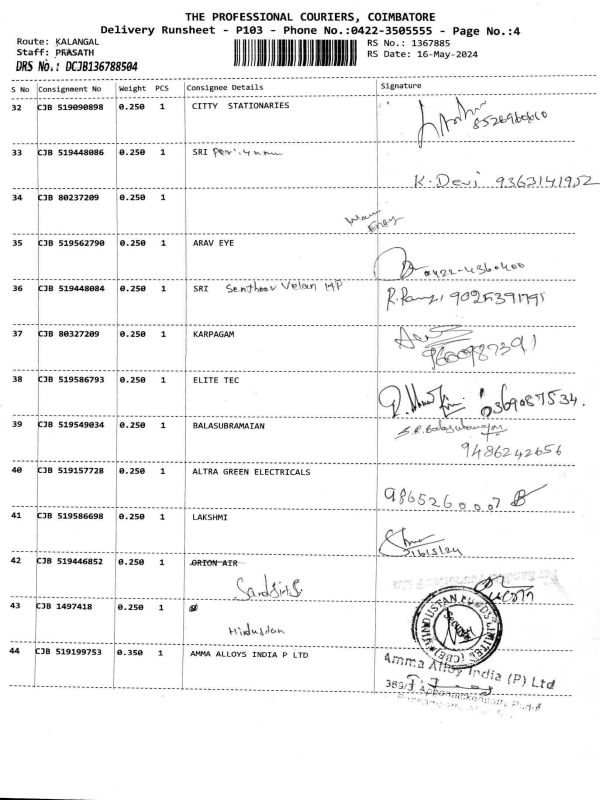 THE PROFESSIONAL COURIERS, COIMBATORE
Delivery Runsheet - P103 - Phone No.:0422-3505555 - Page No.:4
Route: KALANGAL RS No.: 1367885
Staff: PRASATH RS Date: 16-May-2024
DRS No.: DCJB136788504
S No Consignment No Weight PCS Consignee Details Signature
32 CJB 519090898 0.250 1 CITTY STATIONARIES
33 CJB 519448086 0.250 1 SRI
K. Devi 9363141952
34 CJB 80237209 0.250 1
35 CJB 519562790 0.250 1 ARAV EYE
0422-4360400
36 CJB 519448084 0.250 1 SRI Senthoor Velan HP
37 CJB 80327209 0.250 1 KARPAGAM
9600987391
38 CJB 519586793 0.250 1 ELITE TEC
39 CJB 519549034 0.250 1 BALASUBRAMAIAN
9486242656
40 CJB 519157728 0.250 1 ALTRA GREEN ELECTRICALS
9865260007
41 CJB 519586698 0.250 1 LAKSHMI
16/5/24
42 CJB 519446852 0.250 1 ORION AIR
43 CJB 1497418 0.250 1
Hindustan
HINDUSTAN FOODS LIMITED (CBE)
44 CJB 519199753 0.350 1 AMMA ALLOYS INDIA P LTD
Amma Alloy India (P) Ltd